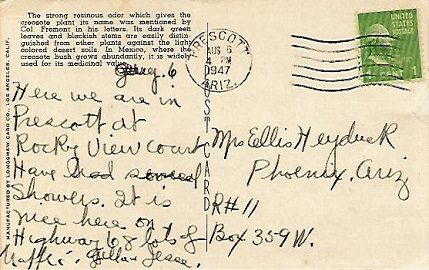 The strong resinous odor which gives the
creosote plant its name was mentioned by
Col. Fremont in his letters. Its dark green
leaves and blackish stems are easily distin-
guished from other plants against the light
colored desert soils. In Mexico, where the
creosote bush grows abundantly, it is widely
used for its medicinal value.
Aug. 6
Here we are in
Prescott at
Rocky View Court
Have had several
Showers. It is
nice here on
Highway 68 lots of
traffic.
Jesse.
MANUFACTURED BY LONGSHAW CARD CO., LOS ANGELES, CALIF.
POST CARD
PRESCOTT
AUG 6
4 PM
1947
ARIZ.
UNITED
STATES
POSTAGE
1
Mrs Ellis Heyduck
Phoenix, Ariz
R#11
Box 359 W.